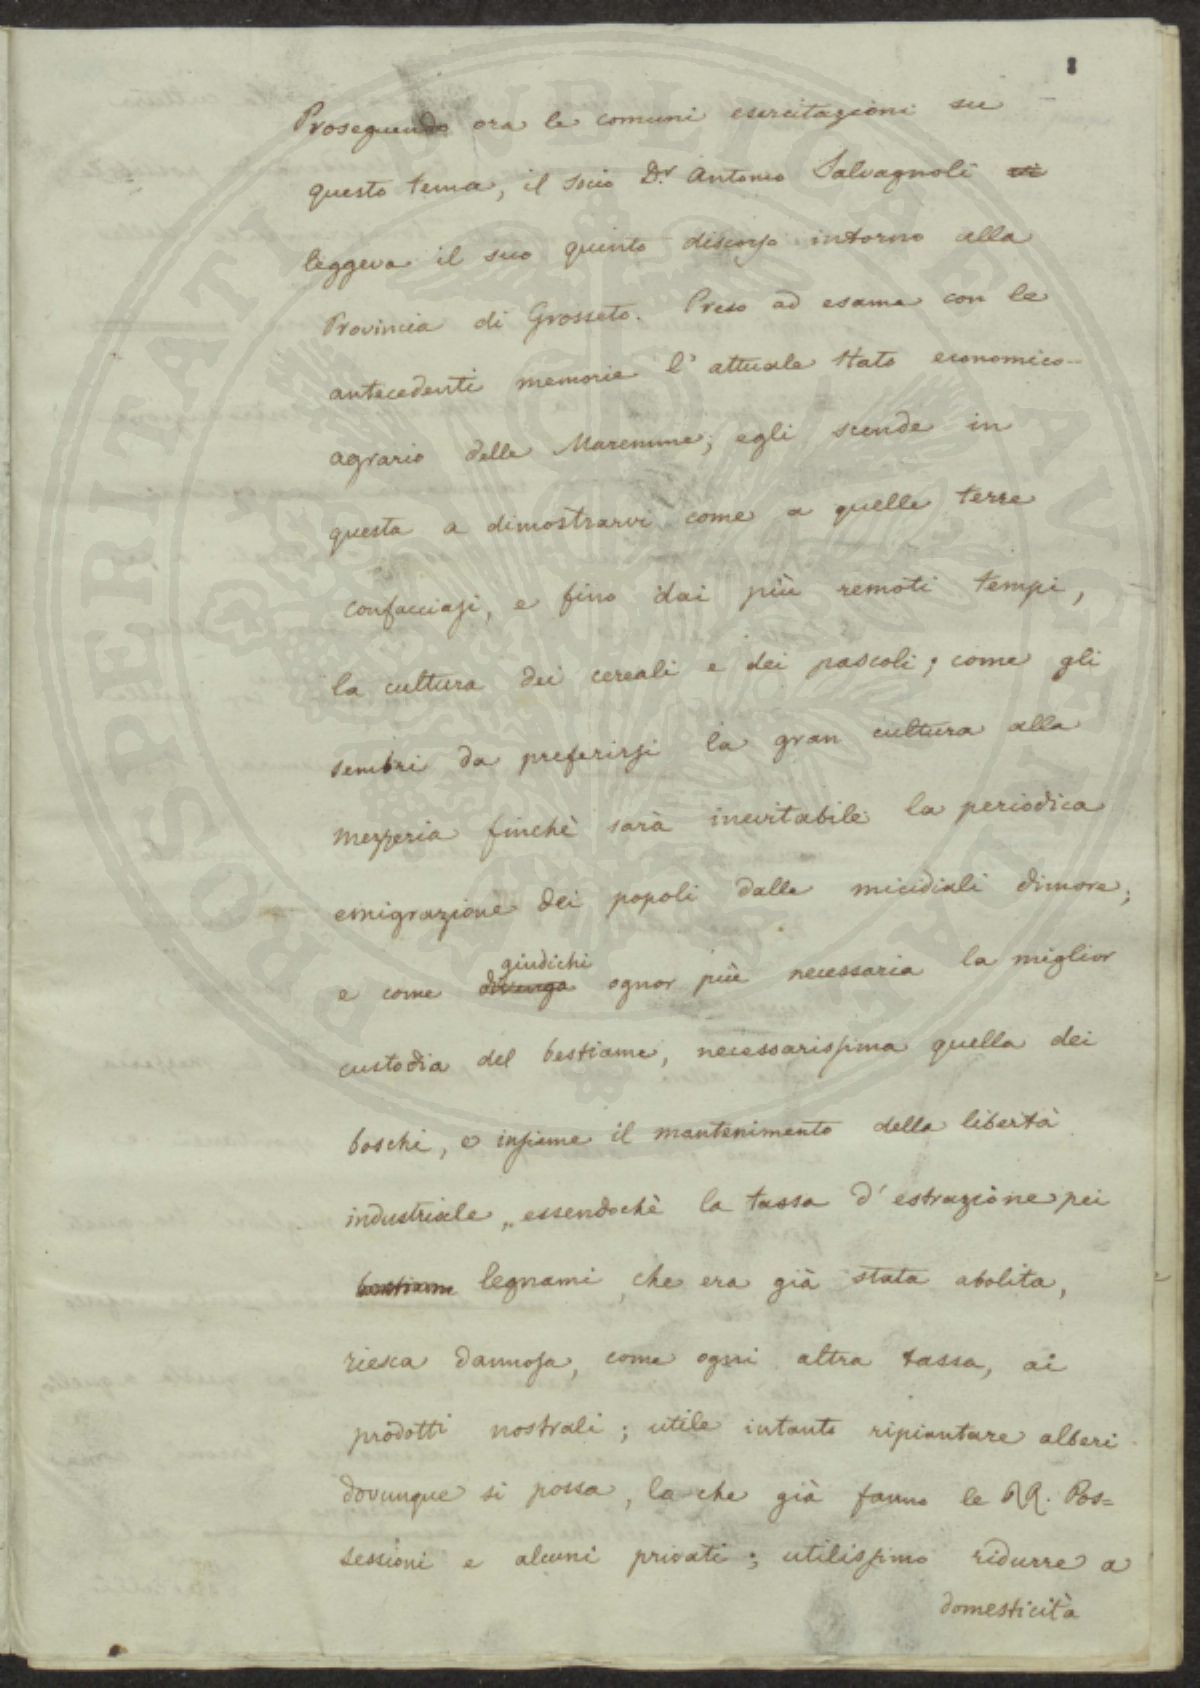 1
Proseguendo ora le comuni esercitazioni su
questo tema, il Socio D.r Antonio Salvagnoli
leggeva il suo quinto discorso intorno alla
Provincia di Grosseto. Preso ad esame con le
antecedenti memorie l'attuale stato economico-
agrario delle Maremme; egli scende in
questa a dimostrarvi come a quelle terre
confacciasi, e fino dai più remoti tempi,
la cultura dei cereali e dei pascoli; come gli
sembri da preferirsi la gran cultura alla
mezzeria finchè sarà inevitabile la periodica
emigrazione dei popoli dalle micidiali dimore;
giudichi
e come divenga ognor più necessaria la miglior
custodia del bestiame, necessarissima quella dei
boschi, e insieme il mantenimento della libertà
industriale, essendochè la tassa d'estrazione pei
bestiame legnami, che era già stata abolita,
riesca dannosa, come ogni altra tassa, ai
prodotti nostrali; utile intanto ripiantare alberi
dovunque si possa, lo che già fanno le RR. Pos=
sessioni e alcuni privati; utilissimo ridurre a
domesticità
PROSPERITATI PUBLICAE AVGENDAE